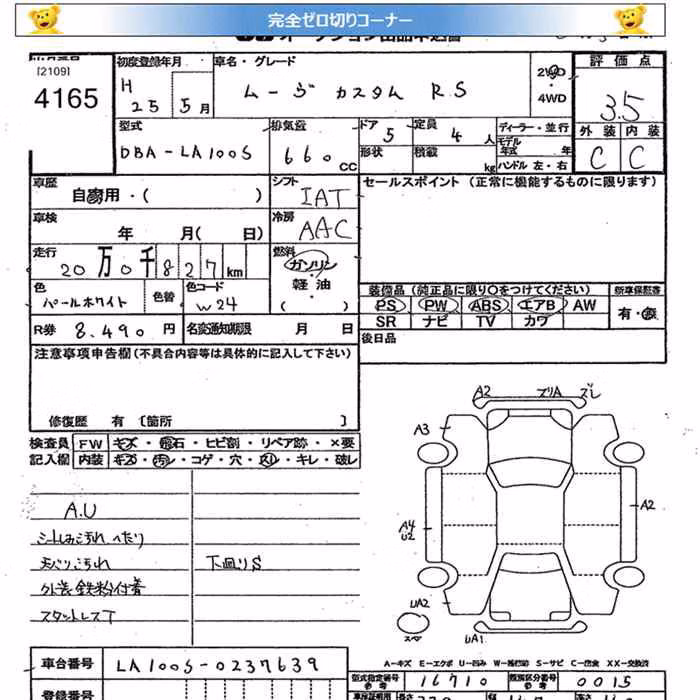 完全ゼロ切りコーナー
[2109]
4165
初度登録年月
H
25 5月
車名・グレード
ムーヴ カスタム RS
2WD
・
4WD
評価点
3.5
外装 内装
C C
型式
DBA-LA100S
排気量
660cc
ドア 5
形状
定員 4 人
積載 kg
ディーラー・並行
モデル年式 年
ハンドル 左・右
車歴
自家用・( )
シフト
IAT
セールスポイント (正常に機能するものに限ります)
車検
年 月( 日)
冷房
AAC
走行
20万0千827km
燃料
ガソリン
・
軽油
( )
色
パールホワイト
色替
色コード
W24
装備品 (純正品に限り○をつけてください)
PS PW ABS エアB AW
SR ナビ TV カワ
新車保証書
有・無
R券 8,490 円
名変通知期限 月 日
後日品
注意事項申告欄 (不具合内容等は具体的に記入して下さい)
修復歴 有 [箇所 ]
検査員 FW キズ・飛石・ヒビ割・リペア跡・×要
記入欄 内装 キズ・汚レ・コゲ・穴・スレ・キレ・破レ
A.U
シートしみ汚れ へたり
天バリ汚れ
下廻りS
外装鉄粉付着
スタットレスT
A2 ズリA ズレ
A3
A2
A4
U2
UA2
スペア
UA1
A-キズ E-エクボ U-凹み W-補修跡 S-サビ C-腐食 XX-交換済
車台番号 LA100S-0237639
型式指定番号 16710
類別区分番号 0015
登録番号